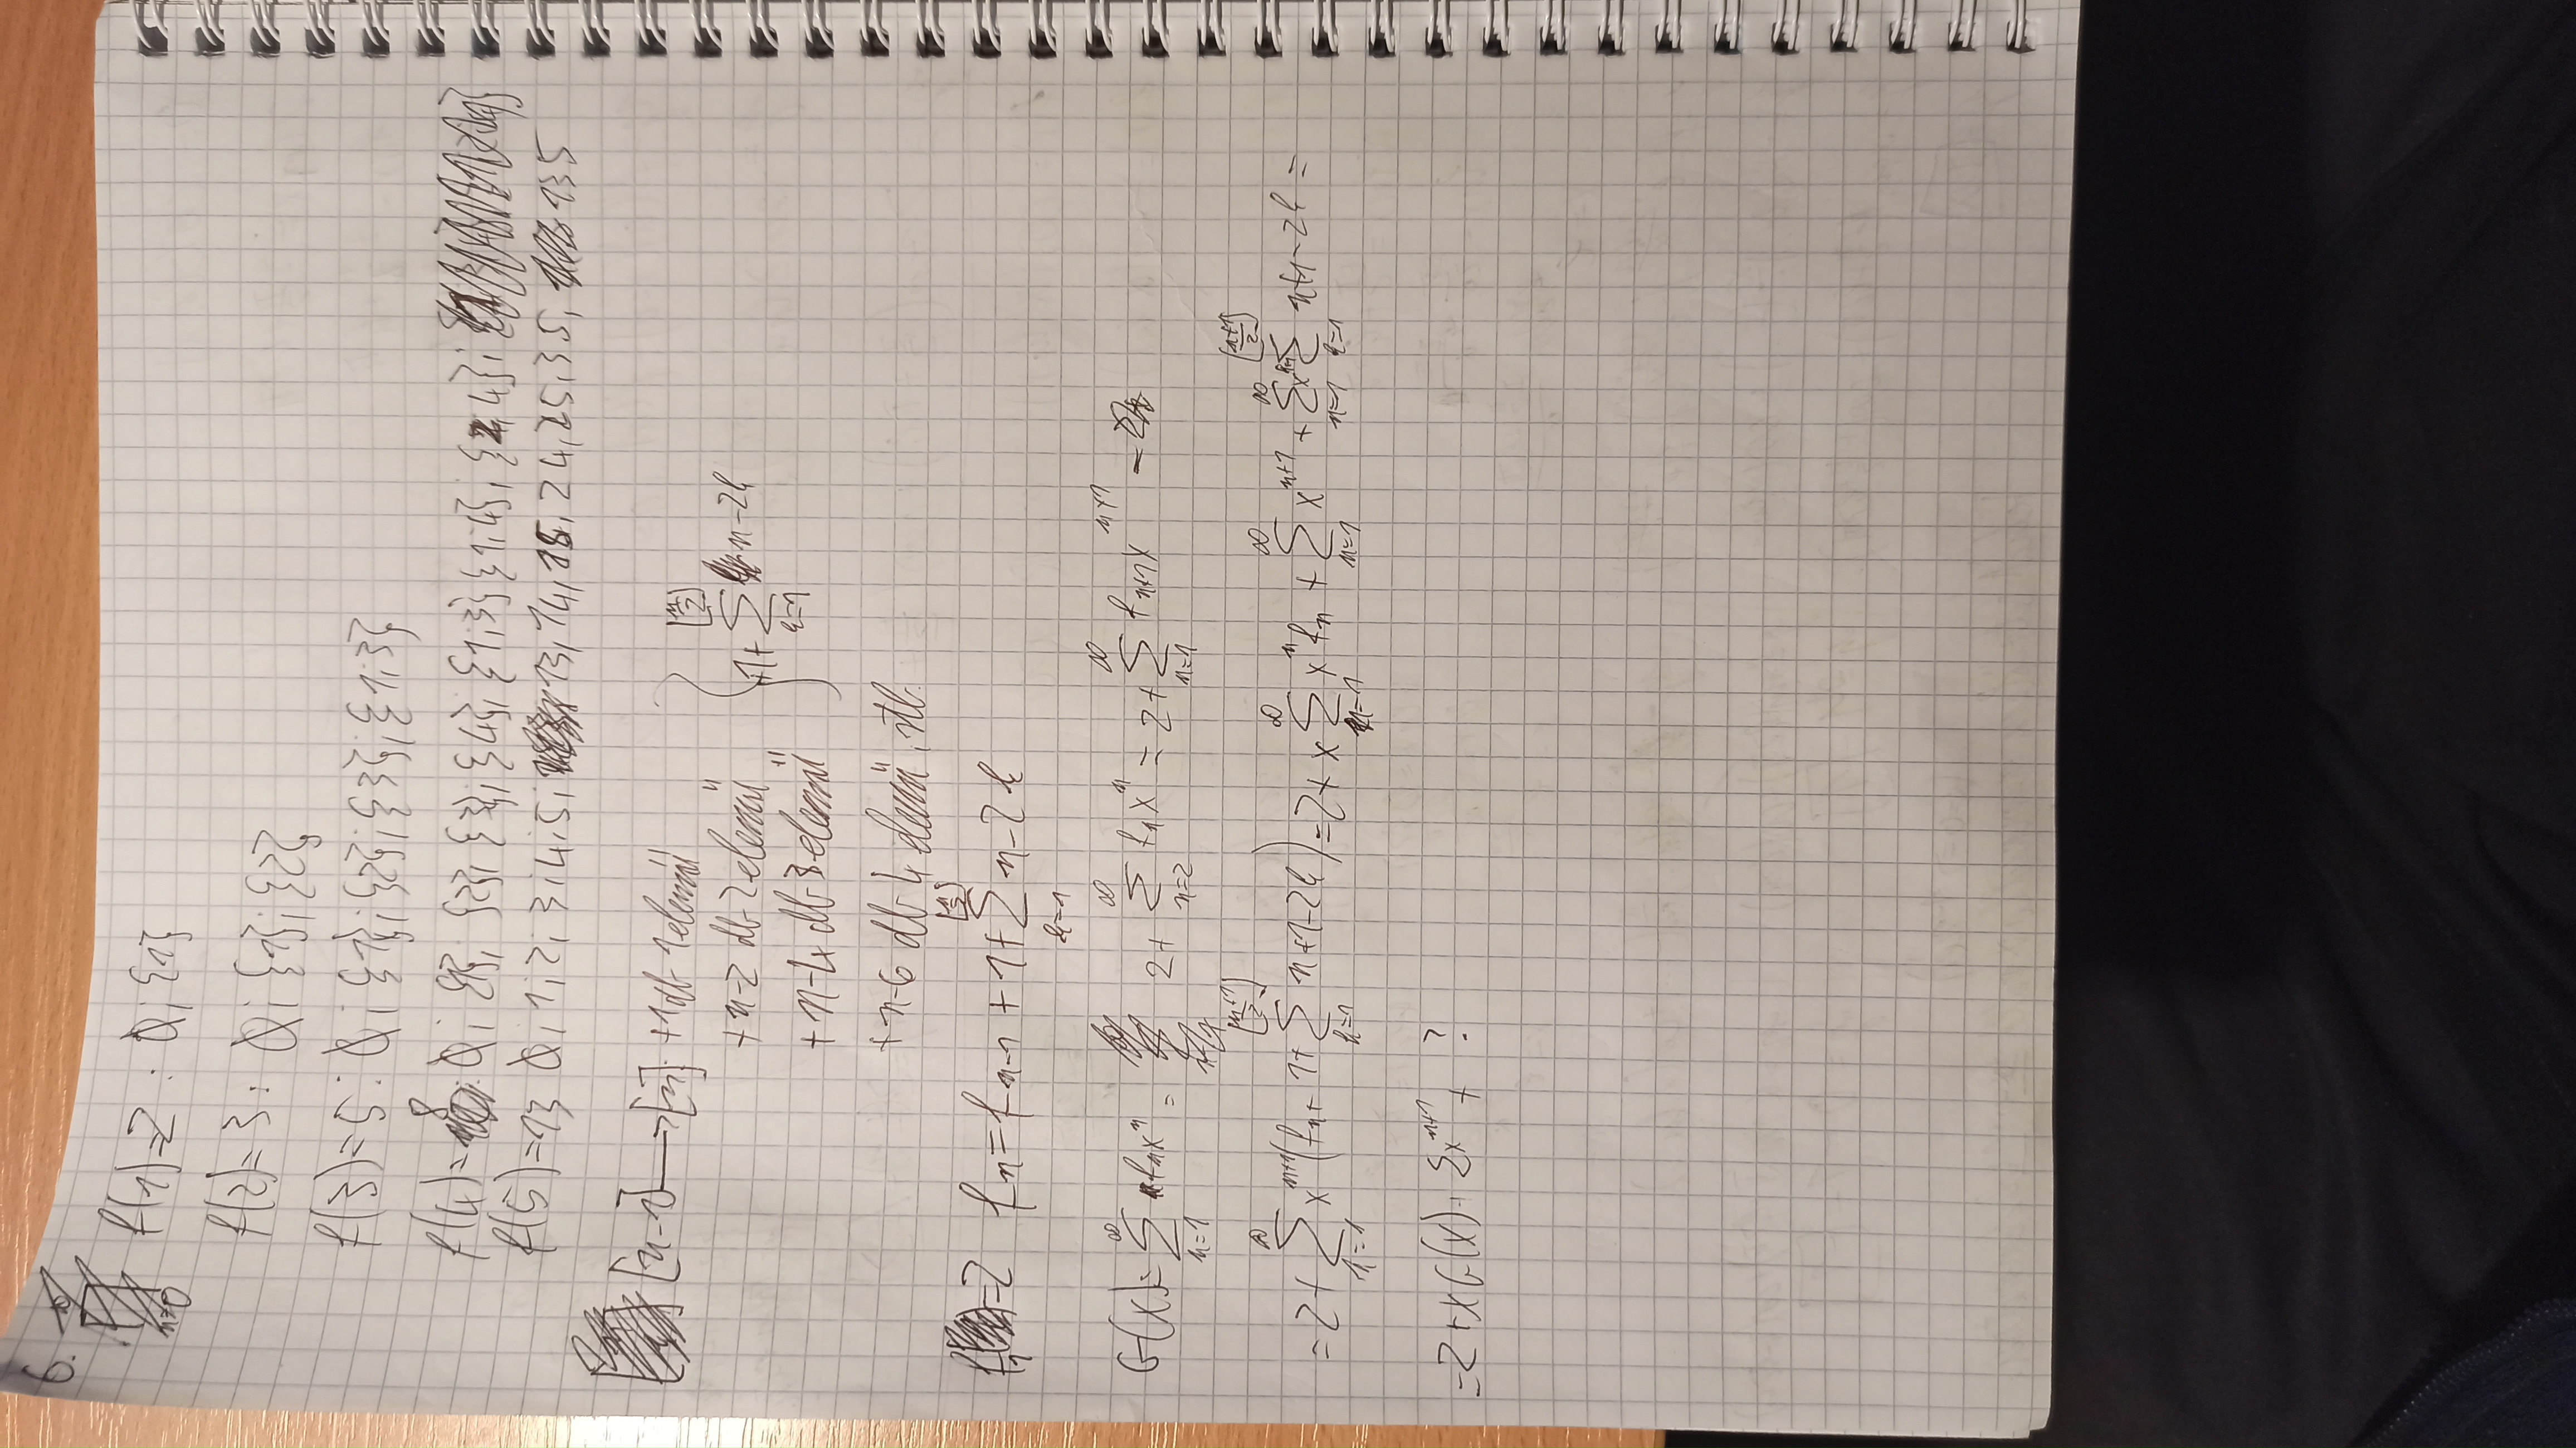 6.
n=0
f(1)=2 : ∅; {1}
f(2)=3 : ∅; {1}; {2}
f(3)=5 : ∅; {1}; {2}; {3}; {1;3}
f(4)=8 ∅; {1}; {2}; {3}; {4}; {1;3} {1;4}; {2;4};
f(5)=13 ∅; 1; 2; 3; 4; 5; 13, 14, 15, 24, 25, 35, 135
[n-1]→[n]: +1 db 1 elemű
+ n-2 db 2 elemű
+ n-4 db 3 elemű
+ n-6 db 4 elemű, stb.
} 1 + ∑_{k=1}^{[n/2]} n-2k
f_1=2 f_n = f_{n-1} + 1 + ∑_{k=1}^{[n/2]} n-2k
G(x) = ∑_{n=1}^{∞} f_n x^n = 2 + ∑_{n=2}^{∞} f_n x^n = 2 + ∑_{n=1}^{∞} f_{n+1} x^{n+1} =
= 2 + ∑_{n=1}^{∞} x^{n+1} (f_n + 1 + ∑_{k=1}^{[(n+1)/2]} n+1-2k) = 2 + x ∑_{n=1}^{∞} x^n f_n + ∑_{n=1}^{∞} x^{n+1} + ∑_{n=1}^{∞} x^{n+1} ∑_{k=1}^{[(n+1)/2]} n+1-2k =
= 2 + x G(x) + ∑ x^{n+1} + ?